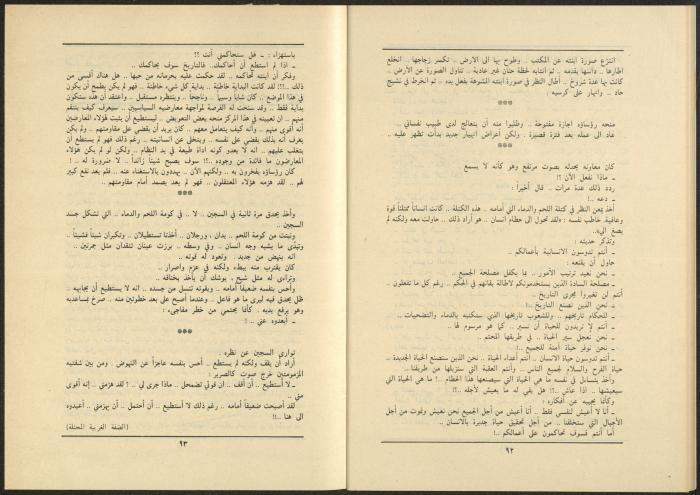 انتزع صورة ابنته عن المكتب .. وطوح بها الى الارض .. تكسر زجاجها .. انخلع
اطارها .. داسها بقدمه .. ثم انتابه لحظة حنان غير عادية .. تناول الصورة عن الأرض ..
كانت بها عدة شروخ .. أطال النظر في صورة ابنته المشوهة بفعل يده .. ثم انخرط في نشيج
حاد .. وانهار على كرسيه .
***
منحه رؤساؤه اجازة مفتوحة .. وطلبوا منه أن يتعالج لدى طبيب نفساني ..
عاد الى عمله بعد فترة قصيرة .. ولكن أعراض انهيار جديد بدأت تظهر عليه ..
***
كان معاونه يحدثه بصوت مرتفع وهو كأنه لا يسمع
ـ ماذا نفعل الآن ؟!
ردد ذلك عدة مرات .. قال أخيراً :
ـ دعه ..!
أخذ يمعن النظر في كتلة اللحم والدماء التي أمامه .. هذه الكتلة .. كانت انساناً ممتلئاً قوة
وعافية. خاطب نفسه : «لقد تحول الى حطام انسان .. هو أراد ذلك .. حاولت معه ولكنه لم
يصغ الي».
وتذكر حديثه :
ـ أنتم تدوسون الانسانية بأعمالكم ..
حاول أن يقنعه :
ـ نحن نعيد ترتيب الأمور .. بما يكفل مصلحة الجميع ..
ـ مصلحة السادة الذين يستخدمونكم لاطالة بقائهم في الحكم .. رغم كل ما تفعلون ..
أنتم لن تغيروا مجرى التاريخ ..
ـ نحن الذين نصنع التاريخ ..
ـ للحكام تاريخهم .. وللشعوب تاريخها الذي ستكتبه بالدماء والتضحيات ..
ـ أنتم لا تريدون للحياة أن تسير .. كما هو مرسوم لها ..
ـ نحن نعجل سير الحياة .. في طريقها المحتم ..
ـ نحن نوفر حياة آمنة للجميع ..!
ـ أنتم تدوسون حياة الانسان .. أنتم أعداء الحياة .. نحن الذين سنصنع الحياة الجديدة ..
حياة الفرح والسلام لجميع الناس .. وأنتم العقبة التي سنزيلها من طريقنا ..
وأخذ يتساءل في نفسه ما هي الحياة التي سيصنعها هذا الحطام ..! ما هي الحياة التي
سيعيشها .. اذا عاش ..؟! هل بقي له ما يعيش لأجله ..؟!
وكأنما يجيبه عن أفكاره :
ـ أنا لا أعيش لنفسي فقط .. أنا أعيش من أجل الجميع نحن نعيش ونموت من أجل
الأجيال التي ستخلفنا .. من أجل تحقيق حياة جديرة بالانسان ..
أما أنتم فسوف تحاكمون على أعمالكم ..!
٩٢
باستهزاء : ـ هل ستحاكمني أنت ؟؟
ـ اذا لم استطع أن أحاكمك.. فالتاريخ سوف يحاكمك ..
وفكر أن ابنته تحاكمه .. لقد حكمت عليه بحرمانه من حبها .. هل هناك أقسى من
ذلك ..؟!! لقد كانت البداية خاطئة .. بداية كل شيء خاطئة .. فهو لم يكن يطمح أن يكون
في هذا الموضع .. كان شاباً وسيماً .. وناجحاً .. وينتظره مستقبل .. واعتقد أن هذه ستكون
بداية فقط .. وقد سنحت له الفرصة لمواجهة معارضيه السياسيين .. سيعرف كيف ينتقم
منهم .. ان تعيينه في هذا المركز منحه بعض التعويض .. ليستطيع أن يثبت لهؤلاء المعارضين
أنه أقوى منهم .. وأنه كيف يتعامل معهم .. كان يريد أن يقضي على مقاومتهم .. ولم يكن
يعرف أنه بذلك يقضي على نفسه .. ويتخلى عن انسانيته .. رغم ذلك فهو لم يستطع أن
يتغلب عليهم .. انه لا يعدو كونه اداة طيعة في يد النظام .. ولكن لو لم يكن هؤلاء
المعارضون ما فائدة من وجوده ..؟! سوف يصبح شيئاً زائداً .. لا ضرورة له .. !
كان رؤساؤه يفخرون به .. ولكنهم الآن .. يهددون بالاستغناء عنه .. فلم يعد نفع كبير
لهم .. لقد هزمه هؤلاء المعتقلون .. فهو لم يعد يصمد أمام مقاومتهم ..
***
وأخذ يحدق مرة ثانية في السجين .. لا .. في كومة اللحم والدماء .. التي تشكل جسد
السجين ..
ونبتت من كومة اللحم .. يدان ، ورجلان .. أخذتا تستطيلان .. وتكبران شيئاً فشيئاً ..
وتبدّى ما يشبه وجه انسان .. وفي وسطه .. برزت عينان تتقدان مثل جمرتين ..
انه ينهض من جديد .. وتعود له قوته ..
كان يقترب منه ببطء ولكنه في عزم واصرار ..
وتراءى له مثل شبح ، يوشك أن يأخذ بخناقه ..
وأحس بنفسه ضعيفاً أمامه .. وبقوته تنسل من جسده .. انه لا يستطيع أن يجابهه ..
ظل يحدق فيه ليرى ما هو فاعل .. وعندما أصبح على بعد خطوتين منه .. صرخ بمساعديه
وهو يرفع يديه .. كأنما يحتمي من خطر مفاجىء :
ـ أبعدوه عني .. !
***
توارى السجين عن نظره .
أراد أن يقف ولكنه لم يستطع .. أحس بنفسه عاجزاً عن النهوض .. ومن بين شفتيه
المزمومتين خرج صوت كالصرير :
ـ لا أستطيع .. أن أقف .. ان قوتي تضمحل .. ماذا جرى لي .. ؟ لقد هزمني .. إنه أقوى
مني ..
لقد أصبحت ضعيفاً أمامه .. رغم ذلك لا أستطيع .. أن أحتمل .. أن يهزمني .. أعيدوه
الى هنا ..!!
(الضفة الغربية المحتلة)
٩٣